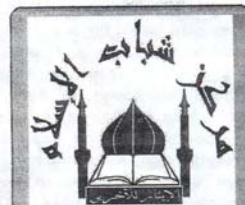 مركز شباب الإسلام
الإيثار للآخرين